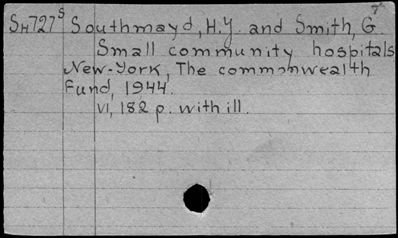 SH727S Southmayd, H.J. and Smith, G.
Small community hospitals
New-York, The commonwealth
Fund, 1944.
VI, 182 p. with ill.